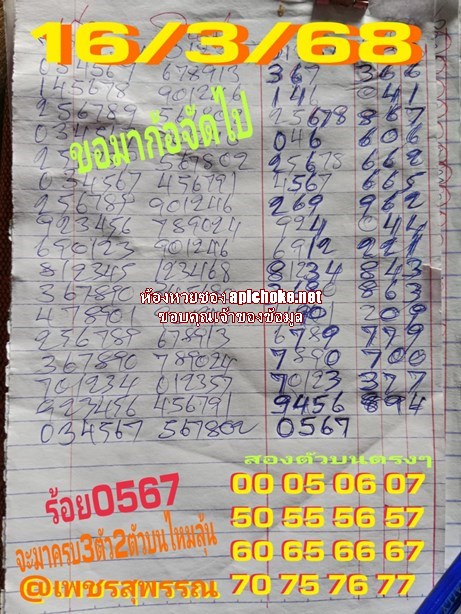 16/3/68
034567 678913 367 366
145678 901246 141 041
256789 25678 867
ขอมาก้อจัดไป
034567 046 606
567802 25678 662
034567 456791 4567 665
256789 901246 269 962
923456 789024 924 044
690123 901246 6912 221
812345 123468 81234 843
367890 863
ห้องหวยซอง apichoke.net
478901 209
ขอบคุณเจ้าของข้อมูล
256789 67891 6789 779
367890 789024 7890 700
701234 012357 70123 377
923456 456791 9456 894
034567 567802 0567
สองตัวบนตรงๆ
ร้อย0567
00 05 06 07
50 55 56 57
จะมาครบ3ตัว2ตัวบนไหมลุ้น
60 65 66 67
@เพชรสุพรรณ
70 75 76 77